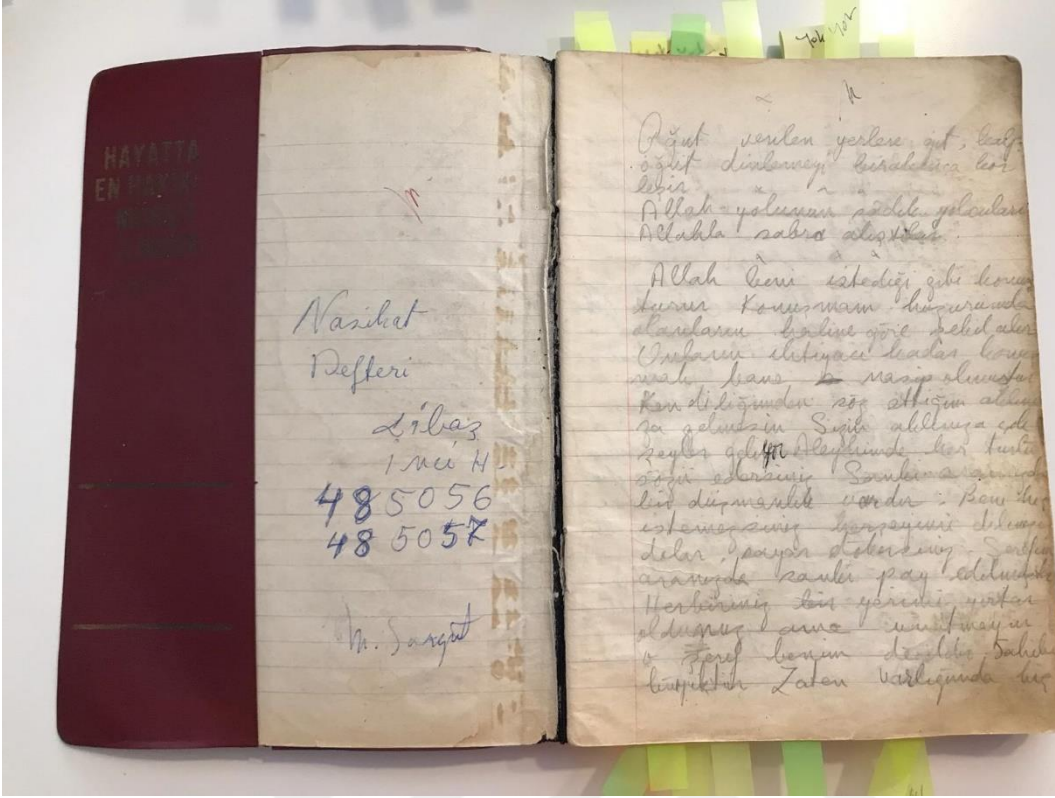 HAYATTA
EN HAKİKİ
Nasihat
Defteri
inci H.
485056
485057
M. Sargut
yok yok
Öğüt verilen yerlere git, kalp
öğüt dinlemeyi bırakınca kör
leşir
Allah yolunun sadık yolcuları
Allahla sabra alıştılar.
Allah beni istediği gibi konuş
turur Konuşmam huzurumda
olanların haline göre şekil alır
Onların ihtiyacı kadar konuş
mak bana nasip olmuştur
Kendiliğimden söz ettiğim aklını
za gelmesin Sizin aklınıza çok
şeyler geliyor Aleyhimde her türlü
sözü edersiniz Sanki aramızda
bir düşmanlık vardır. Beni hiç
istemezsiniz herşeyimi dilim
diler, sayıp dökersiniz. Şerefim
aranızda sanki pay edilmiştir
Herbiriniz bir yerimi yırtar
oldunuz ama unutmayın
o şeref benim değildir Sahibi
büyüktür Zaten varlığımda hiç